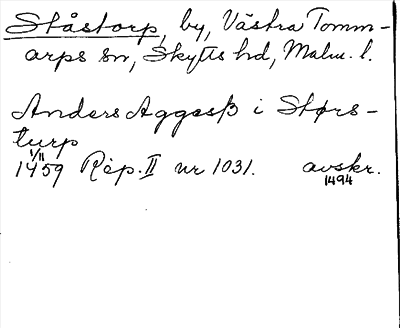 Ståstorp, by, Västra Tomm-
arps sn, Skytts hd, Malm. l.
Anders Aggesß i Størs-
turp
1/11
1459 Rep. II nr 1031. avskr.
1494